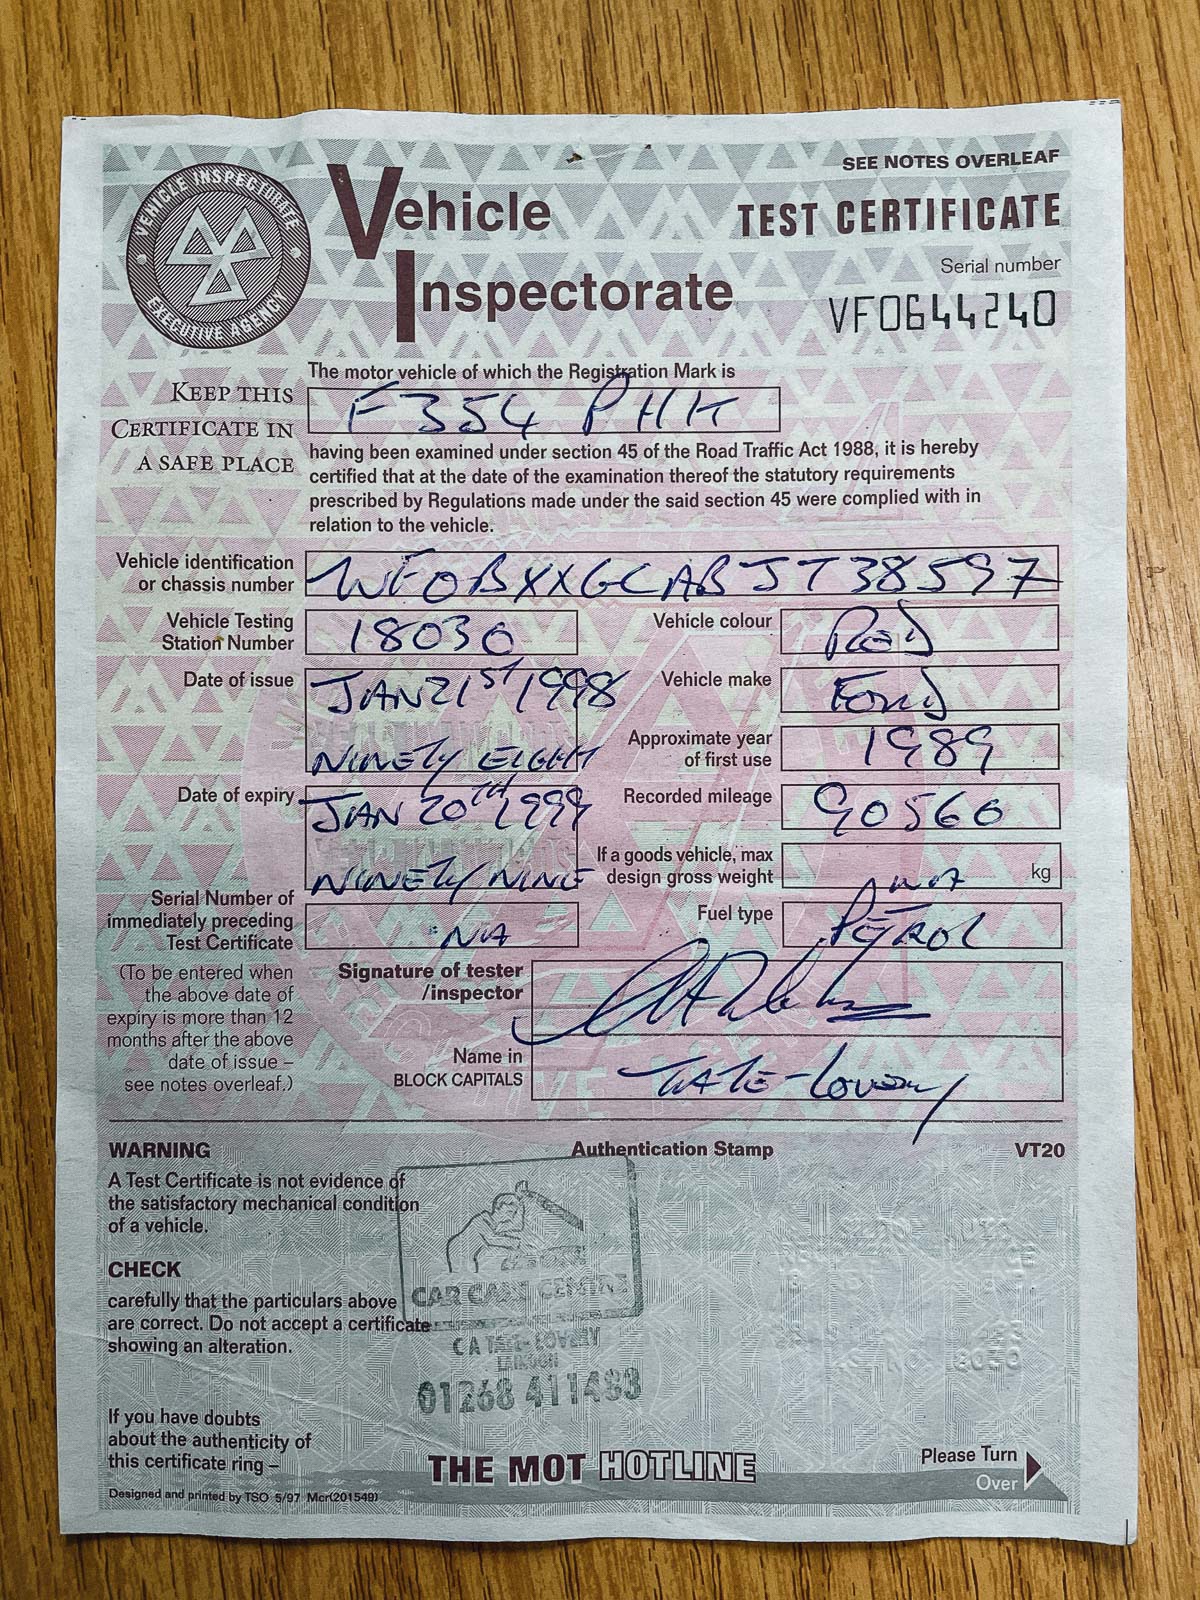 SEE NOTES OVERLEAF
VEHICLE INSPECTORATE
EXECUTIVE AGENCY
Vehicle
Inspectorate
TEST CERTIFICATE
Serial number
VF0644240
The motor vehicle of which the Registration Mark is
F354 PHK
KEEP THIS
CERTIFICATE IN
A SAFE PLACE
having been examined under section 45 of the Road Traffic Act 1988, it is hereby
certified that at the date of the examination thereof the statutory requirements
prescribed by Regulations made under the said section 45 were complied with in
relation to the vehicle.
Vehicle identification
or chassis number
WFOBXXGCABJT38597
Vehicle Testing
Station Number
18030
Vehicle colour
Red
Date of issue
JAN 21ST 1998
NINETY EIGHT
Vehicle make
Ford
Approximate year
of first use
1989
Date of expiry
JAN 20TH 1999
NINETY NINE
Recorded mileage
90560
If a goods vehicle, max
design gross weight
kg
Serial Number of
immediately preceding
Test Certificate
NA
Fuel type
PETROL
(To be entered when
the above date of
expiry is more than 12
months after the above
date of issue –
see notes overleaf.)
Signature of tester
/inspector
Name in
BLOCK CAPITALS
TATE-LOVERY
WARNING
A Test Certificate is not evidence of
the satisfactory mechanical condition
of a vehicle.
Authentication Stamp
VT20
CHECK
carefully that the particulars above
are correct. Do not accept a certificate
showing an alteration.
CAR CARE CENTRE
C A TATE-LOVERY
LAINDON
01268 411483
If you have doubts
about the authenticity of
this certificate ring –
THE MOT HOTLINE
Please Turn
Over
Designed and printed by TSO 5/97 Mcr(201549)